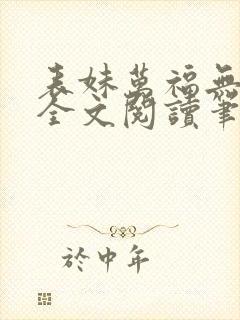 表妹萬福無
全文閱讀筆
於中年